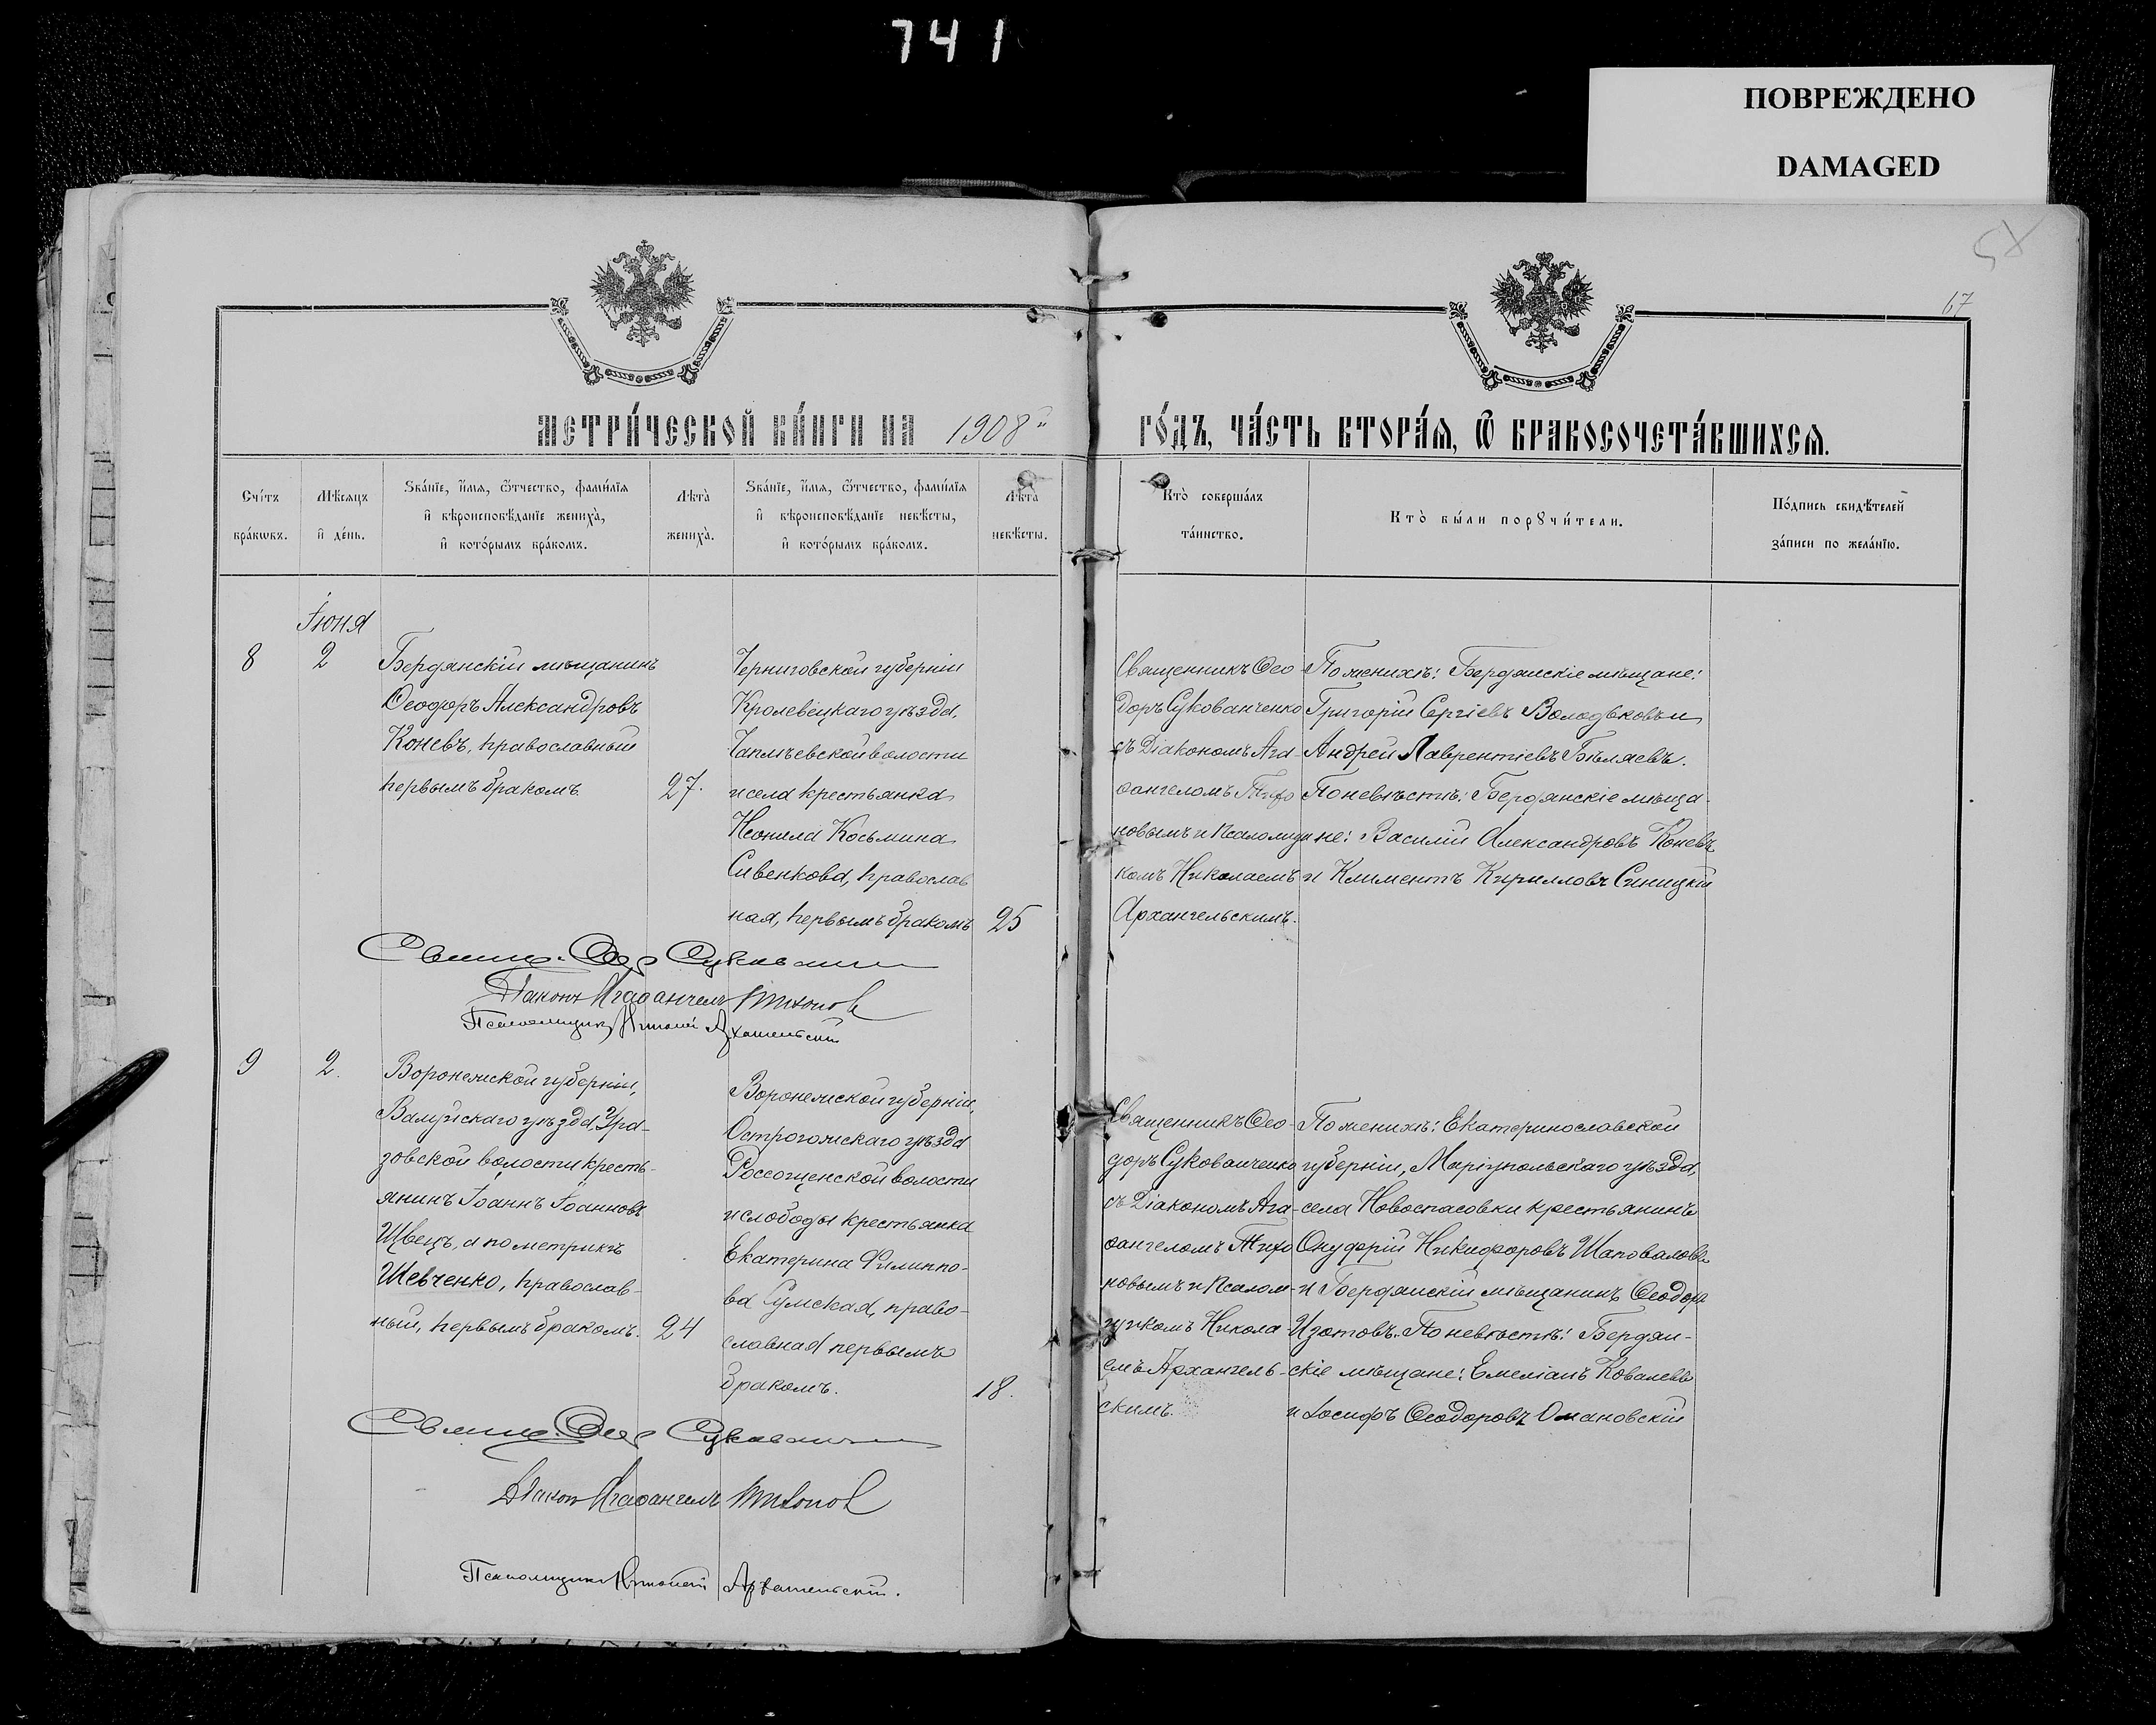 741
ПОВРЕЖДЕНО
DAMAGED
58
67
МЕТРИ́ЧЕСКОЙ КНИ́ГИ НА 1908й
ГО́ДЪ, ЧА́СТЬ ВТОРА́Я, Ѿ БРАКОСОЧЕТА́ВШИХСЯ.
Сче́тъ
бра́кωвъ.
Мѣ́сяцъ
и҆ де́нь.
Ѕва́нїе, и҆́мя, ѻ҆́тчество, фами́лїя
и҆ вѣроисповѣ́данїе жениха̀,
и҆ кото́рымъ бра́комъ.
Лѣта̀
жениха̀.
Ѕва́нїе, и҆́мя, ѻ҆́тчество, фами́лїя
и҆ вѣроисповѣ́данїе невѣ́сты,
и҆ кото́рымъ бра́комъ.
Лѣта̀
невѣ́сты.
Кто̀ соверша́лъ
та́инство.
Кто̀ бы́ли порꙋчи́тели.
По́дпись свидѣ́телей
за́писи по жела́нїю.
Іюня
8
2
Бердянскій мѣщанинъ
Ѳеодоръ Александровъ
Коневъ, православный
первымъ бракомъ
27.
Черниговской губерніи
Кролевецкаго уѣзда,
волости
и села крестьянка
Неонила Косьмина
Сивенкова, православ
ная, первымъ бракомъ
25
Священникъ Ѳео-
доръ Сукованченко
съ Діакономъ Ага-
ѳангеломъ Тихо
новымъ и Псаломщи
комъ Николаемъ
Архангельскимъ.
По женихѣ: Бердянскіе мѣщане:
Григорій Сергіевъ Володьковъ и
Андрей Лаврентіевъ Бѣляевъ.
По невѣстѣ: Бердянскіе мѣща-
не: Василій Александровъ Коневъ
и Климентъ Кирилловъ Синицкій
Діаконъ Агаѳангелъ Тихонов
Псаломщикъ Николай Архангельскій
9
2.
Воронежской губерніи,
Валуйскаго уѣзда, Ура-
зовской волости кресть-
янинъ Іоаннъ Іоанновъ
Швецъ, а по метрикѣ
Шевченко, православ-
ный, первымъ бракомъ.
24
Воронежской губерніи,
Острогожскаго уѣзда
Россошенской волости
и слободы крестьянка
Екатерина Филиппо-
ва Сумская, право-
славная первымъ
бракомъ.
18.
Священникъ Ѳео-
доръ Сукованченко
съ Діакономъ Ага-
ѳангеломъ Тихо
новымъ и Псалом-
щикомъ Никола-
емъ Архангель-
скимъ.
По женихѣ: Екатеринославской
губерніи, Маріупольскаго уѣзда,
села Новоспасовки крестьянинъ
Онуфрій Никифоровъ Шаповаловъ
и Бердянскій мѣщанинъ Ѳеодоръ
Изотовъ. По невѣстѣ: Бердян-
скіе мѣщане: Емеліанъ Ковалевъ
и Іосифъ Ѳеодоровъ
Діаконъ Агаѳангелъ Тихонов
Псаломщикъ Николай Архангельскій.